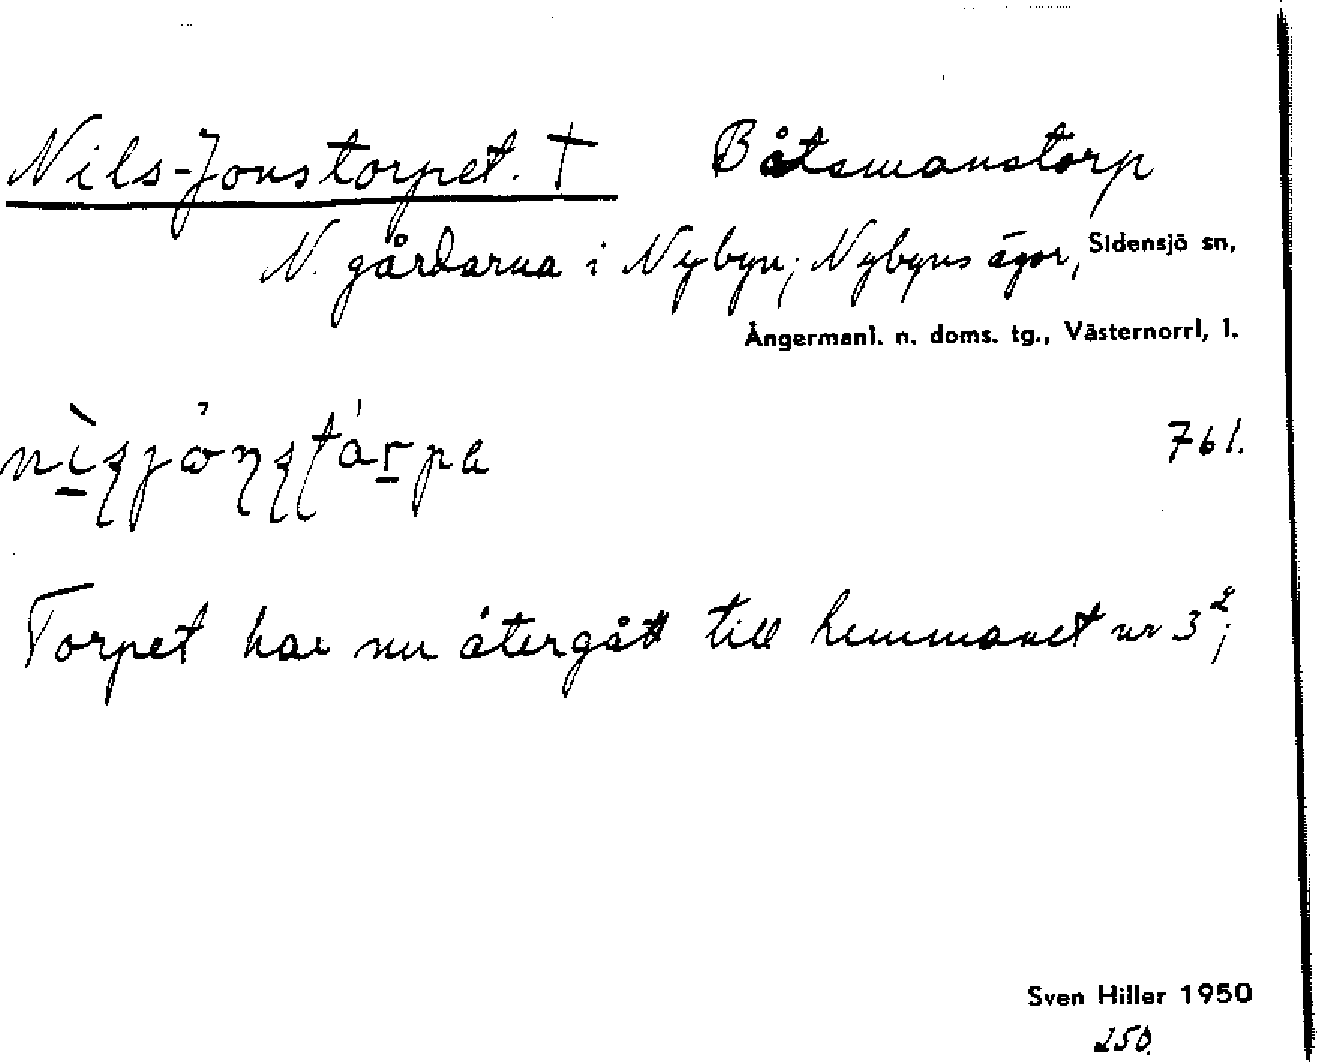 Nils-Jonstorpet. † Båtsmanstorp
N. gårdarna i Nybyn; Nybyns ägor, Sidensjö sn,
Ångermanl. n. doms. tg., Västernorrl, l.
761.
Torpet har nu återgått till hemmanet nr 3²;
Sven Hiller 1950
250.